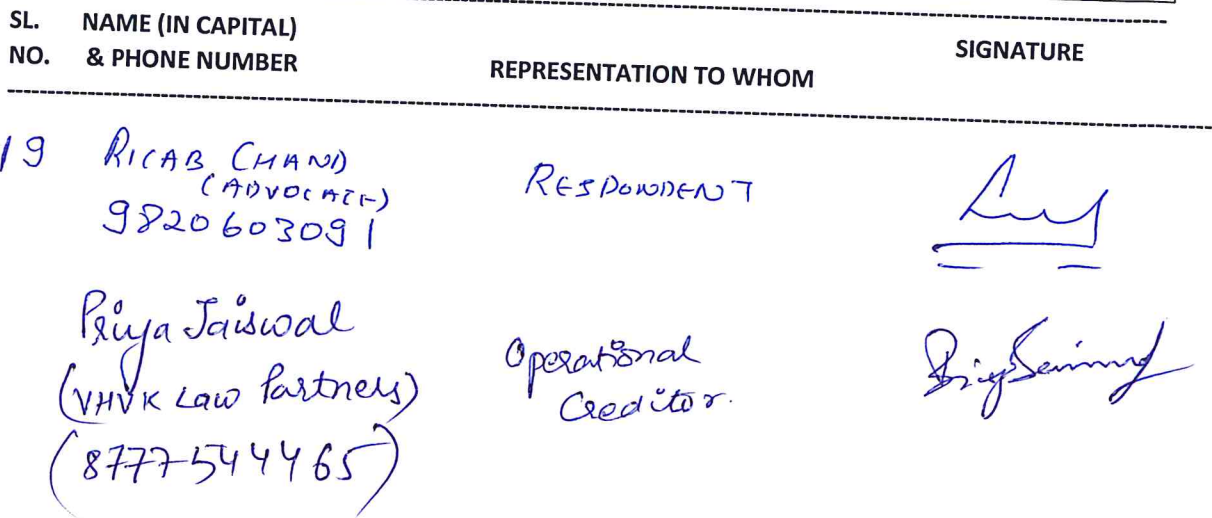 SL. NAME (IN CAPITAL)
NO. & PHONE NUMBER
REPRESENTATION TO WHOM
SIGNATURE
19 RICAB CHAND
(ADVOCATE)
9820603091
RESPONDENT
Priya Jaiswal
(VHVK Law Partners)
(8777544465)
Operational
Creditor.